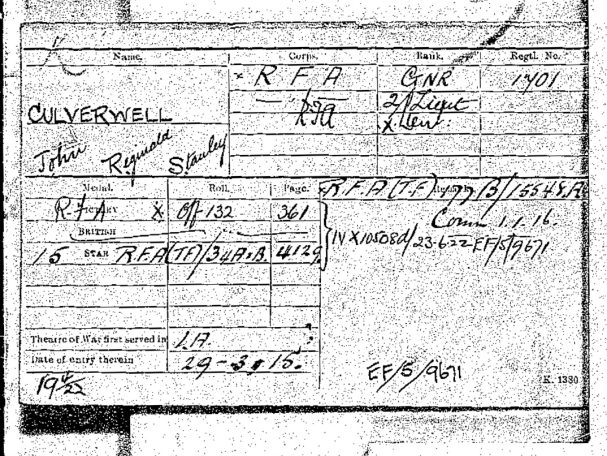 Name. Corps. Rank. Regtl. No.
CULVERWELL
John Reginald Stanley
× R F A GNR 1701
— " — 2/Lieut
RFA X Lieut:
Medal. Roll. Page. Remarks.
VICTORY X Off-132 361
R.F.A
BRITISH
15 STAR R.F.A(TF)/34A&B 4129
×R.F.A (T.F)
Comn 1.1.16.
IV X10508d/23-6-22 EF/5/9671
Theatre of War first served in 1.A.
Date of entry therein 29-3-15.
EF/5/9671
K. 1380